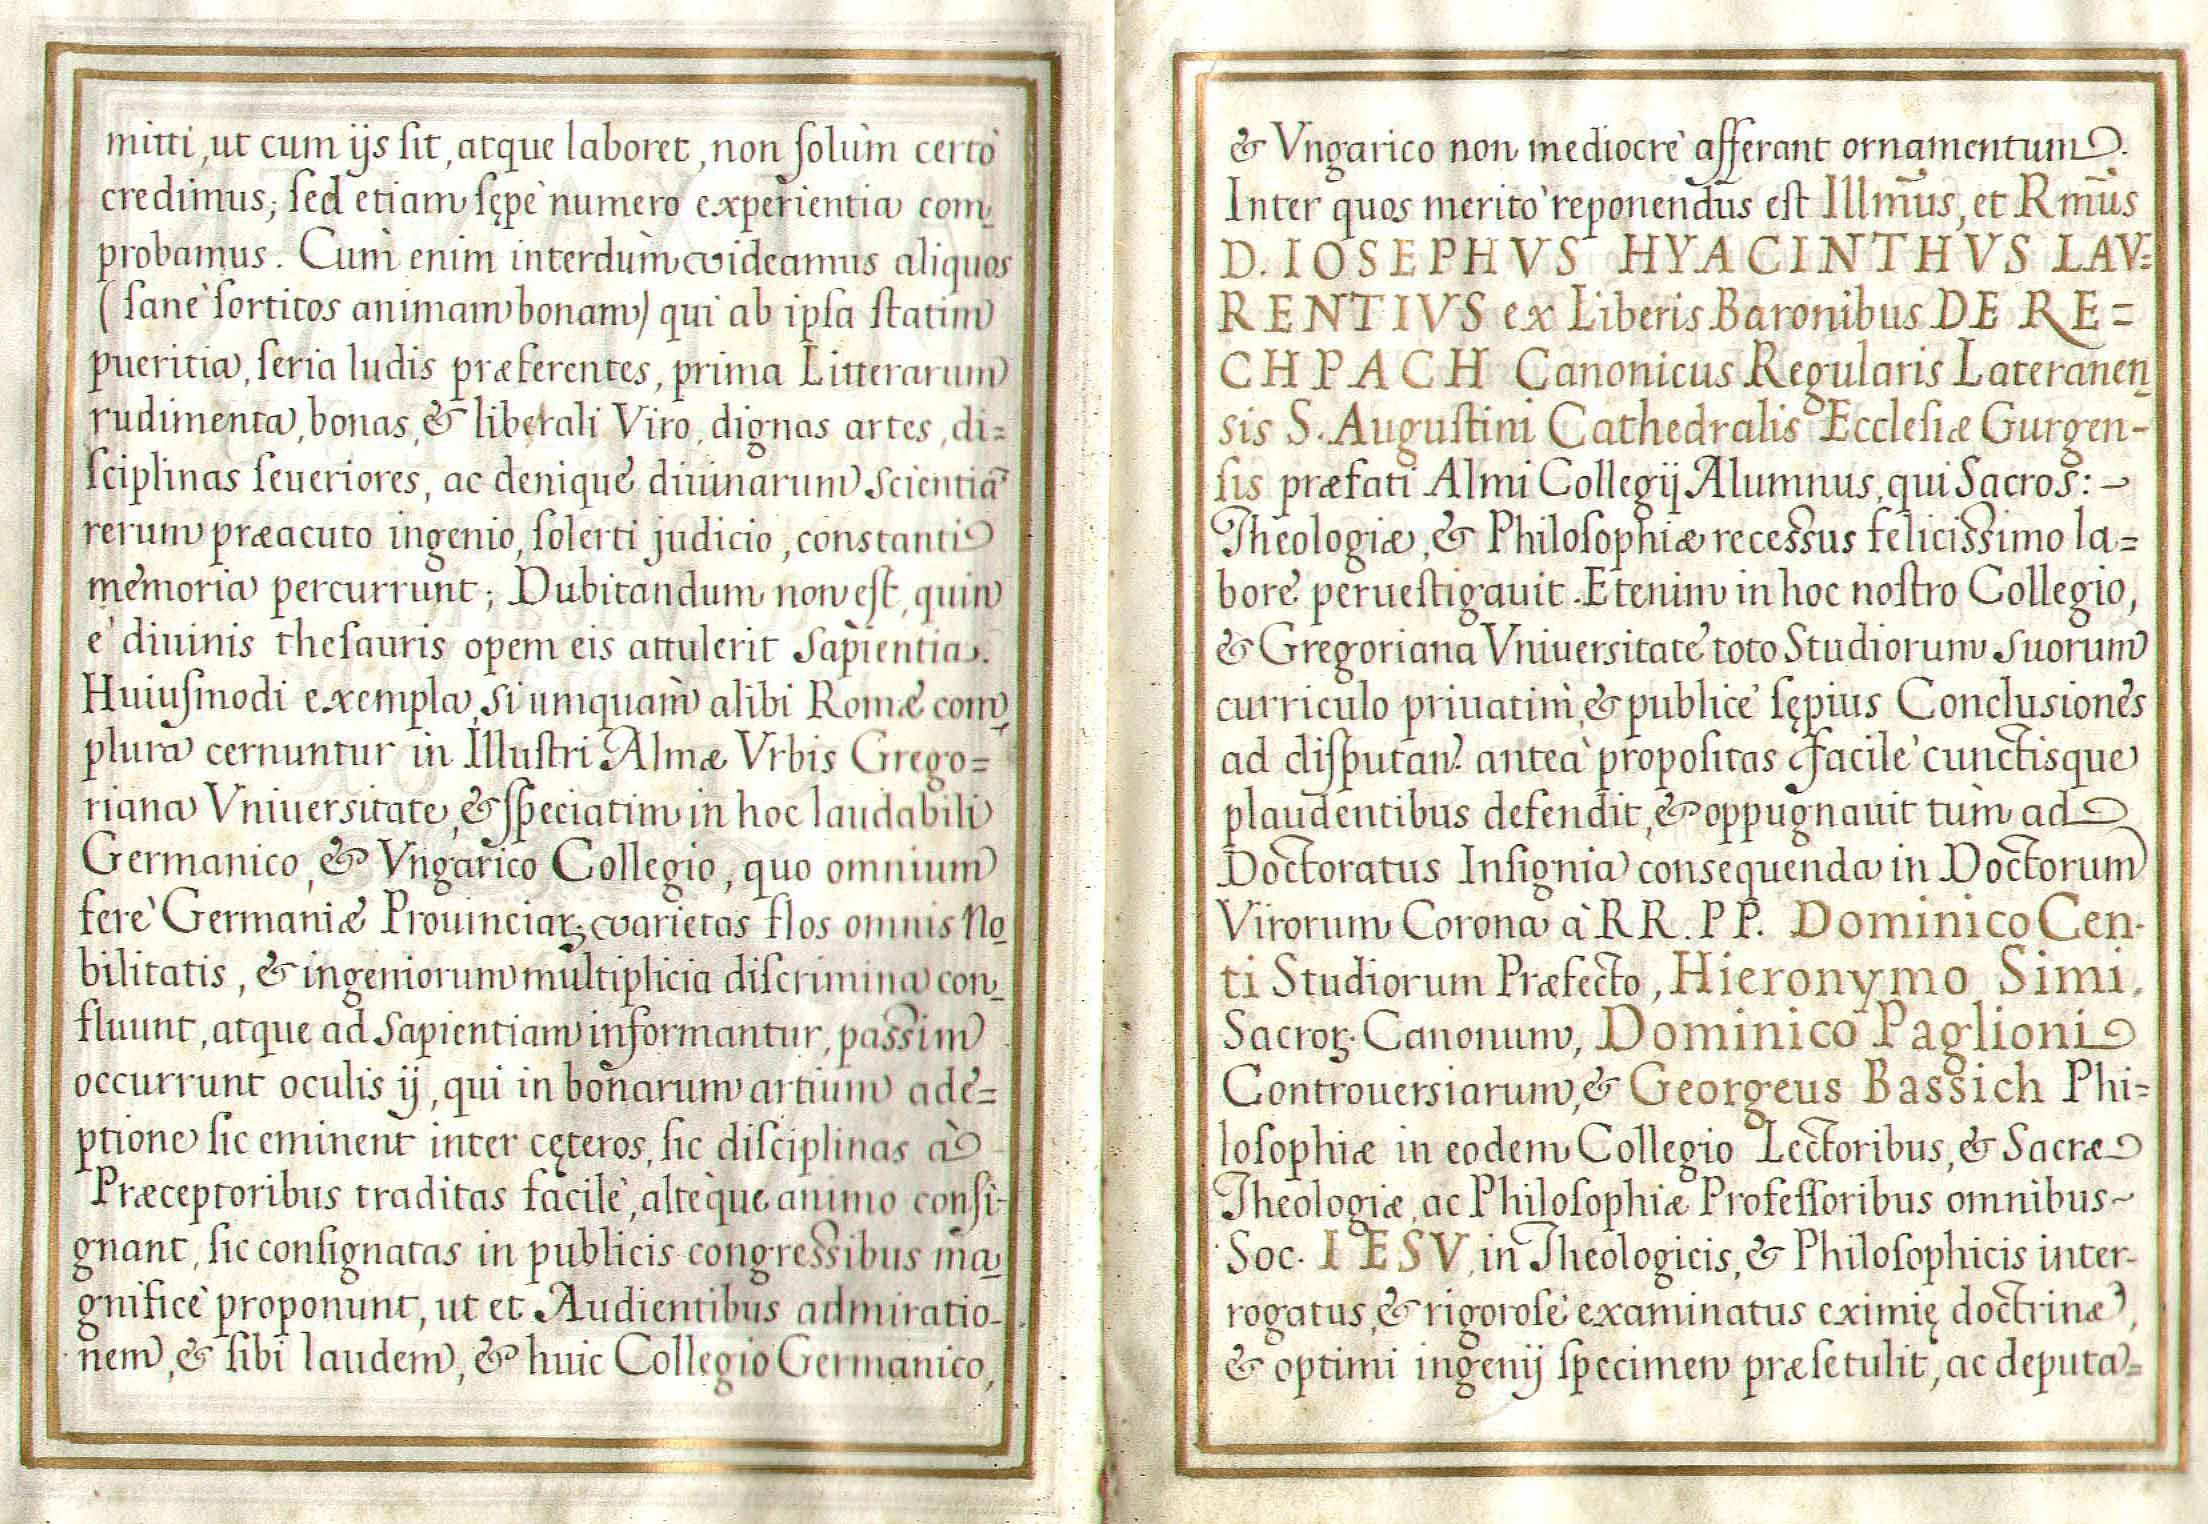 mitti, ut cum ijs sit, atque laboret, non solùm certò
credimus; sed etiam sępè numero experientia com-
probamus. Cùm enim interdùm videamus aliquos
(sanè sortitos animam bonam) qui ab ipsa statim
pueritia, seria ludis præferentes, prima Litterarum
rudimenta, bonas, & liberali Viro, dignas artes, di=
sciplinas seueriores, ac denique diuinarum scientiã
rerum præacuto ingenio, solerti judicio, constanti
memoria percurrunt; Dubitandum non est, quin
è diuinis thesauris opem eis attulerit Sapientia.
Huiusmodi exempla, si umquàm alibi Romæ com-
plura cernuntur in Illustri Almæ Vrbis Grego=
riana Vniuersitate, & speciatim in hoc laudabili
Germanico, & Vngarico Collegio, quo omnium
ferè Germaniæ Prouinciaꝝ varietas flos omnis No-
bilitatis, & ingeniorum multiplicia discrimina con-
fluunt, atque ad Sapientiam informantur, passìm
occurrunt oculis ij, qui in bonarum artium ade=
ptione sic eminent inter cęteros, sic disciplinas à
Præceptoribus traditas facilè, altèque animo consi-
gnant, sic consignatas in publicis congressibus ma-
gnificè proponunt, ut et Audientibus admiratio-
nem, & sibi laudem, & huic Collegio Germanico,
& Vngarico non mediocrè afferant ornamentum.
Inter quos meritò reponendus est Illm̃us, et Rm̃us
D. IOSEPHVS HYACINTHVS LAV=
RENTIVS ex Liberis Baronibus DE RE=
CHPACH Canonicus Regularis Lateranen
sis S. Augustini Cathedralis Ecclesiæ Gurgen-
sis præfati Almi Collegij Alumnus, qui Sacros:
Theologiæ, & Philosophiæ recessus felicissimo la=
bore peruestigauit. Etenim in hoc nostro Collegio,
& Gregoriana Vniuersitate toto Studiorum suorum
curriculo priuatìm, & publicè sępius Conclusiones
ad disputan. anteà propositas facilè cunctisque
plaudentibus defendit, & oppugnauit tùm ad
Doctoratus Insignia consequenda in Doctorum
Virorum Corona à RR. PP. Dominico Cen-
ti Studiorum Præfecto, Hieronymo Simi,
Sacroꝝ. Canonum, Dominico Paglioni
Controuersiarum, & Georgeus Bassich Phi=
losophiæ in eodem Collegio Lectoribus, & Sacræ
Theologiæ, ac Philosophiæ Professoribus omnibus~
Soc. IESV, in Theologicis, & Philosophicis inter-
rogatus, & rigorosè examinatus eximię doctrinæ,
& optimi ingenij specimen præsetulit, ac deputa=